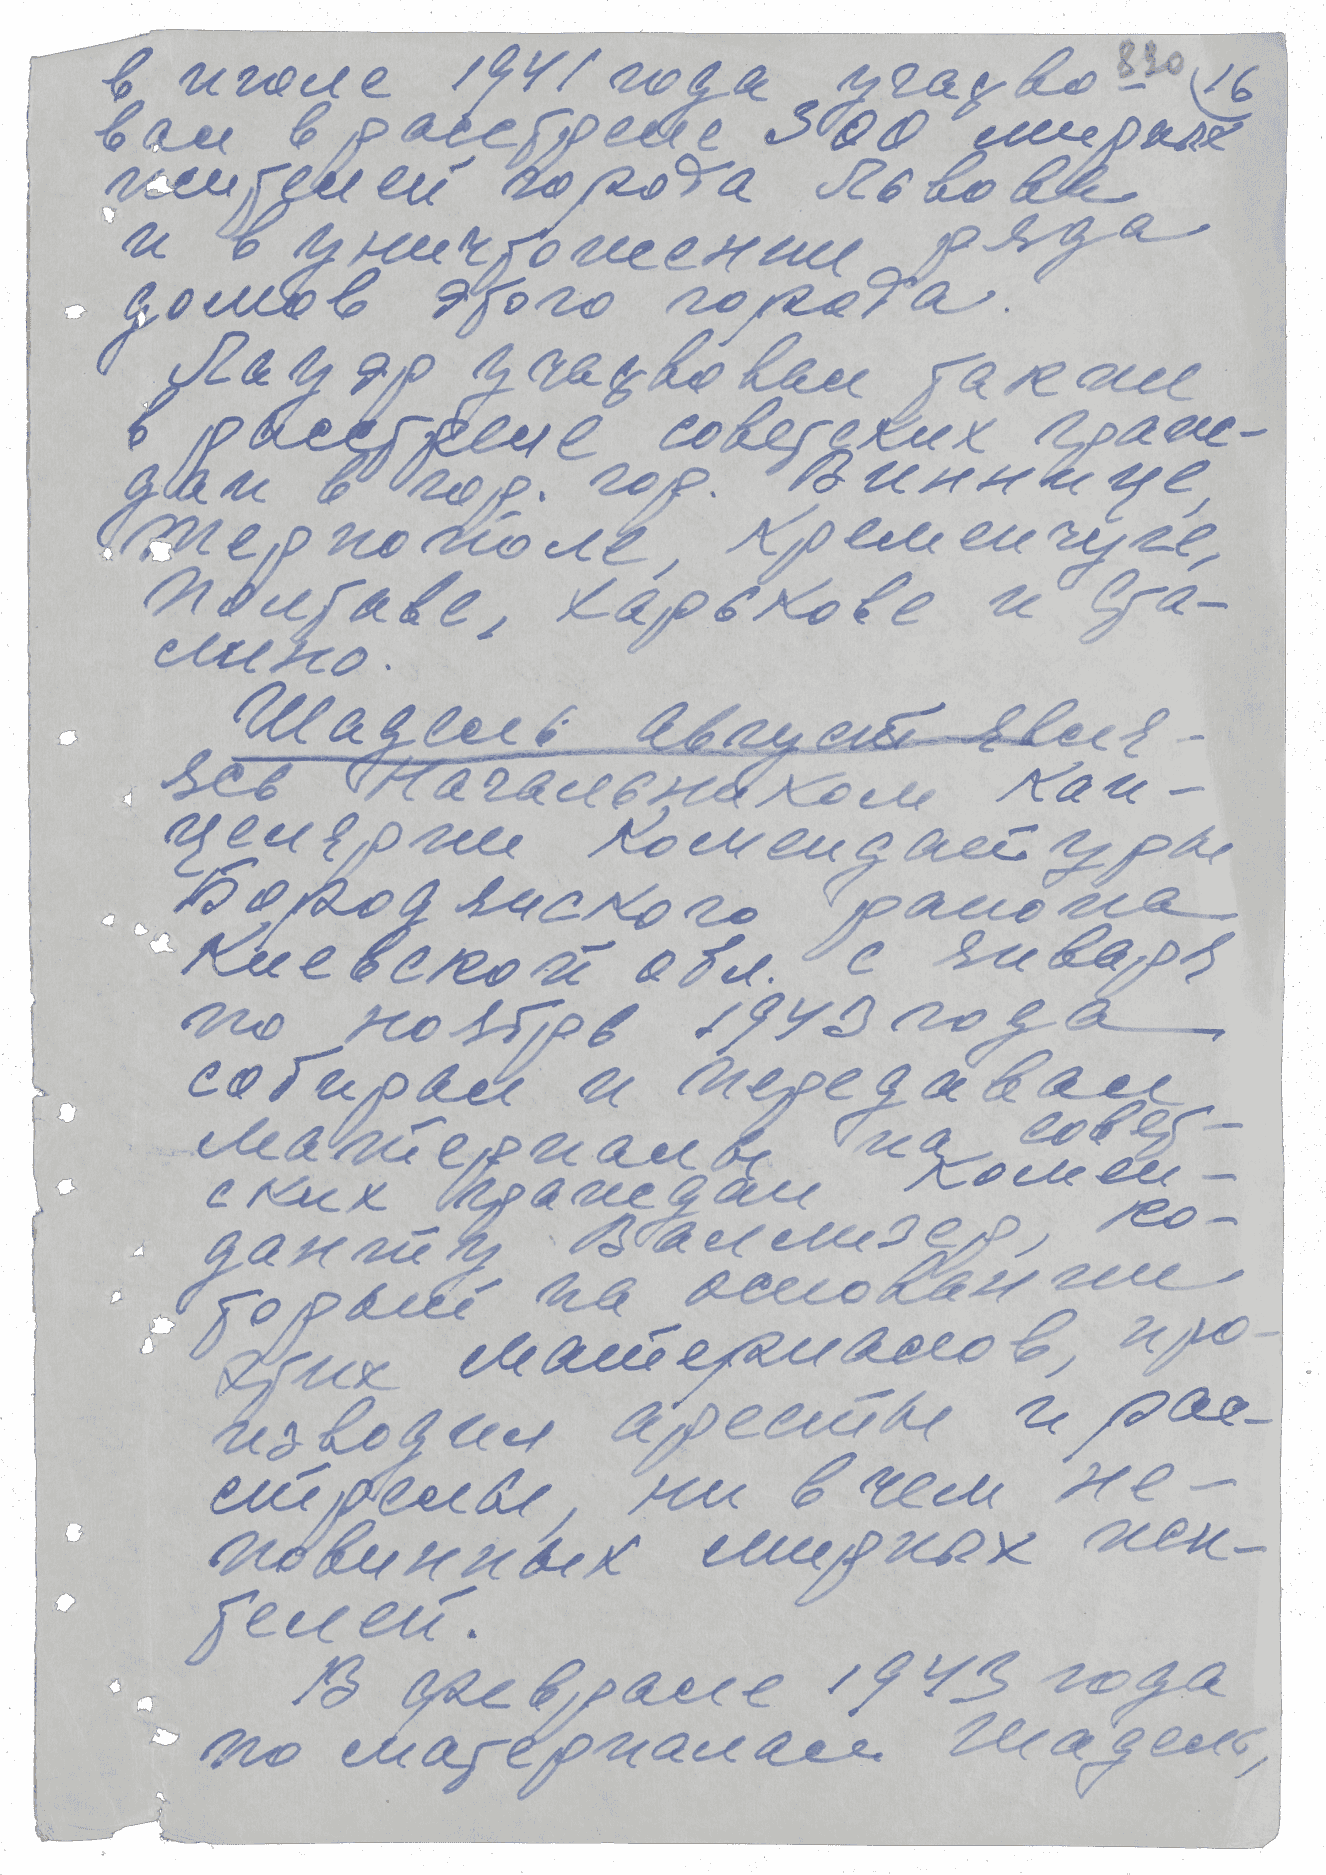 830 16
в июле 1941 года участво-
вал в расстреле 300 мирных
жителей города Львова
и в уничтожении ряда
домов этого города.
Лауэр участвовал также
в расстреле советских граж-
дан в гор. гор. Виннице,
Тернополе, Кременчуге,
Полтаве, Харькове и Ста-
лино.
Шадель Август явля-
ясь начальником кан-
целярии комендатуры
Бородянского района
Киевской обл. с января
по ноябрь 1943 года
собирал и передавал
материалы на совет-
ских граждан комен-
данту Валлизер, ко-
торый на основании
этих материалов, про-
изводил аресты и рас-
стрелы, ни в чем не-
повинных мирных жи-
телей.
В феврале 1943 года
по материалам Шадель,